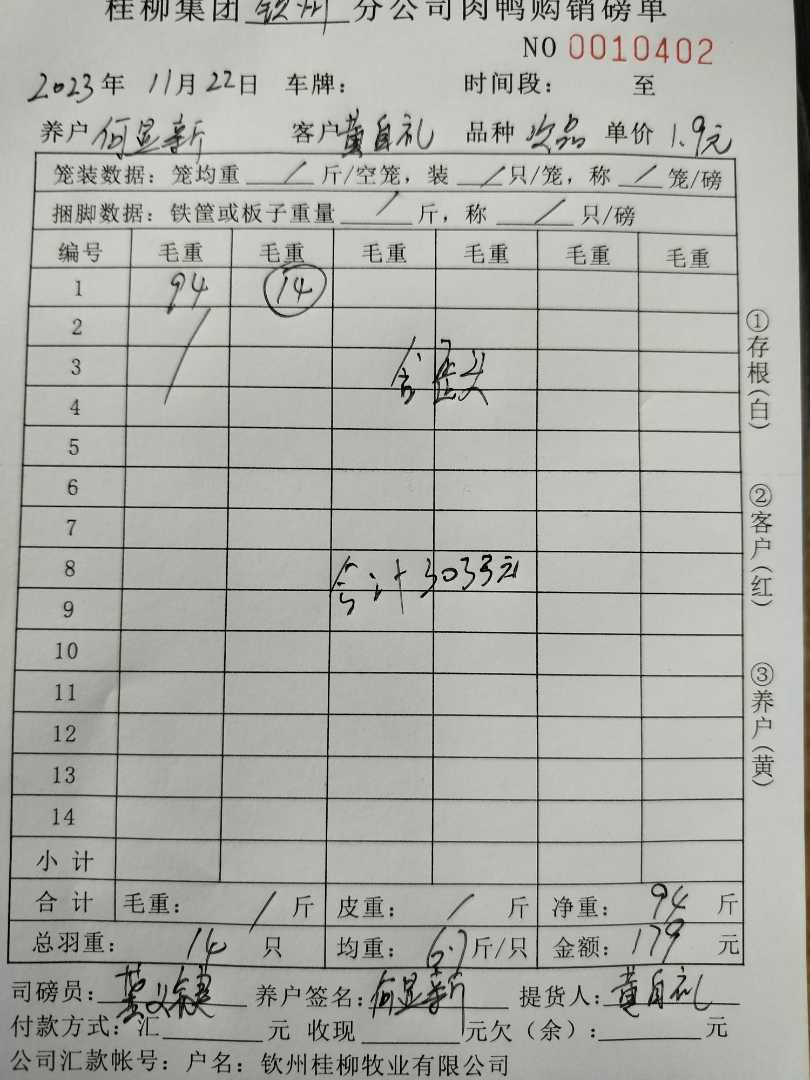 桂柳集团 钦州 分公司肉鸭购销磅单
NO 0010402
2023年 11月 22日 车牌: 时间段: 至
养户 何显新 客户 黄自礼 品种 次品 单价 1.9元
笼装数据: 笼均重 / 斤/空笼, 装 / 只/笼, 称 / 笼/磅
捆脚数据: 铁筐或板子重量 / 斤, 称 / 只/磅
编号 毛重 毛重 毛重 毛重 毛重 毛重
1 94 14
2
3 含歪头
4
5
6
7
8 合计3033元
9
10
11
12
13
14
小计
合计 毛重: / 斤 皮重: / 斤 净重: 94 斤
总羽重: 14 只 均重: 6.7 斤/只 金额: 179 元
司磅员: 养户签名: 何显新 提货人: 黄自礼
付款方式: 汇 元 收现 元欠(余): 元
公司汇款帐号: 户名: 钦州桂柳牧业有限公司
①存根(白)
②客户(红)
③养户(黄)